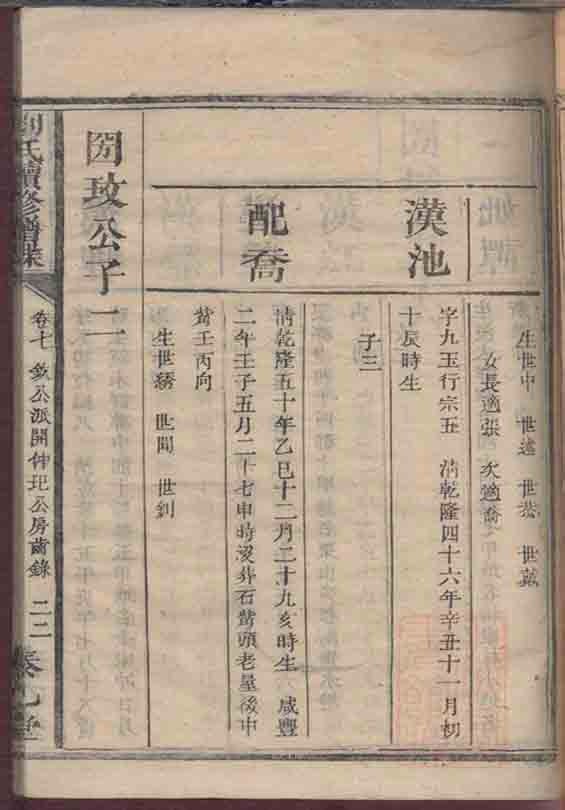 生世中 世述 世恭 世燕
女長適張 次適喬
漢池
字九玉行宗五 清乾隆四十六年辛丑十一月初
十辰時生
子三
配喬
清乾隆五十年乙巳十二月二十九亥時生 咸豐
二年壬子五月二十七申時歿葬石嘴頭老墓後中
嘴壬丙向
生世綉 世聞 世釗
閉玫公子二
劉氏續修譜牒
卷七 公派開仲玘公房齒錄 二二